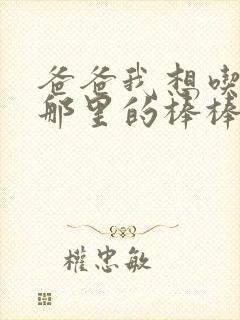 爸爸我想喫
那里的棒棒
權忠敏